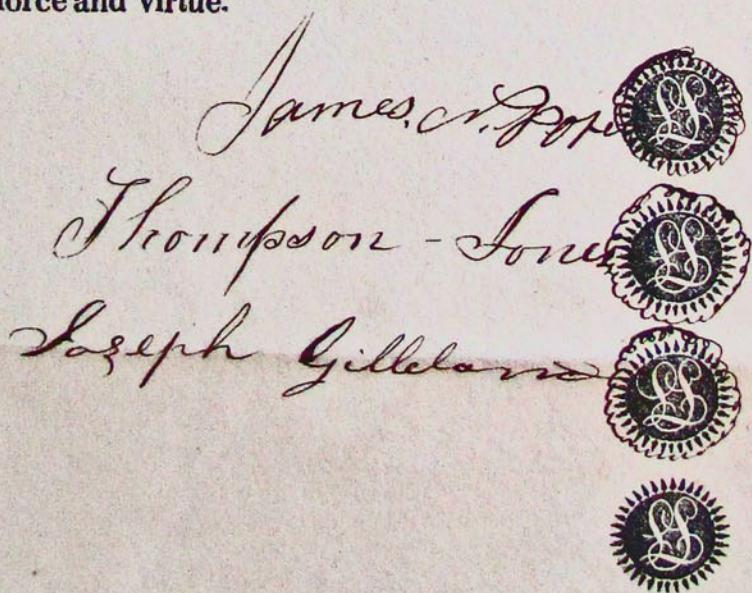 force and virtue.
James. N. Pope LS
Thompson - Jones LS
Joseph Gilleland LS
LS